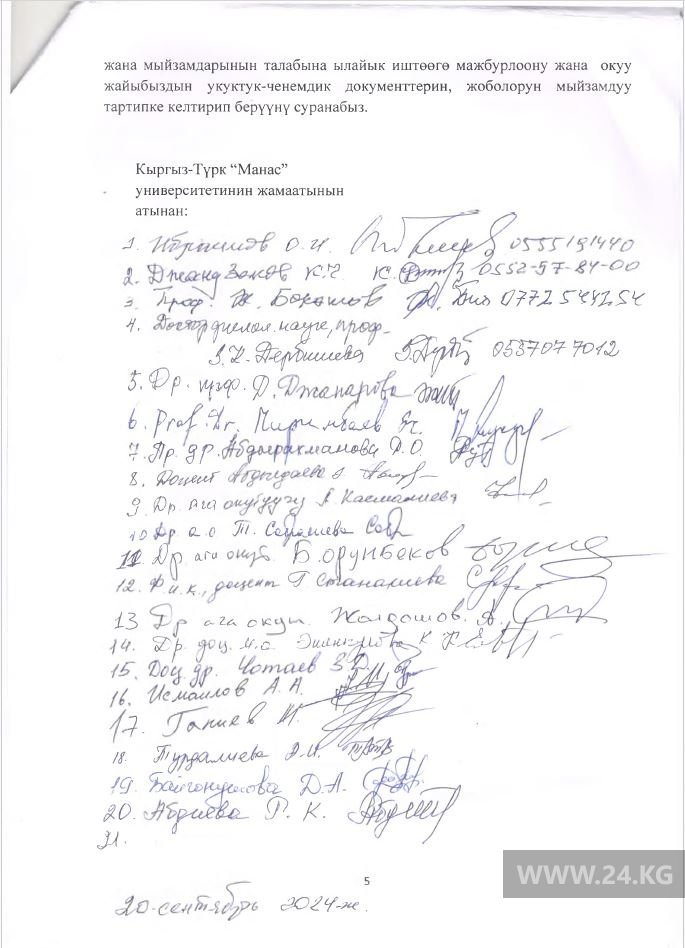 жана мыйзамдарынын талабына ылайык иштөөгө мажбурлоону жана окуу
жайыбыздын укуктук-ченемдик документтерин, жоболорун мыйзамдуу
тартипке келтирип берүүнү суранабыз.
Кыргыз-Түрк “Манас”
университетинин жамаатынын
атынан:
1. Ибраимов О. И. 0555191440
2. Джандзаков К.Ч. 0552-57-84-00
3. Проф. Ж. Бокошов 0772544254
4. Доктор филол. наук, проф.
З.К. Дербишева 0557077012
5. Др. проф. Д. Джапарова
6. Prof. Dr.
7. Пр. др. Абдырахманова
8. Доцент Абдылдаева
9. Др. ага окутуучу А. Касмалиева
10 Др а.о Т.
11 Др ага окут. Б. Орунбеков
12. Ф.и.к., доцент Г Станалиева
13 Др ага окут. Жолдошов. А.
14. Др. доц. м.а.
15. Доц. др. Чотаев З.Д.
16. Исмаилов А. А.
17. Ганиев И.
18. Турдалиева
19. Д.А.
20. Абдиева Г. К.
21.
5
20-сентябрь 2024-ж.
WWW.24.KG